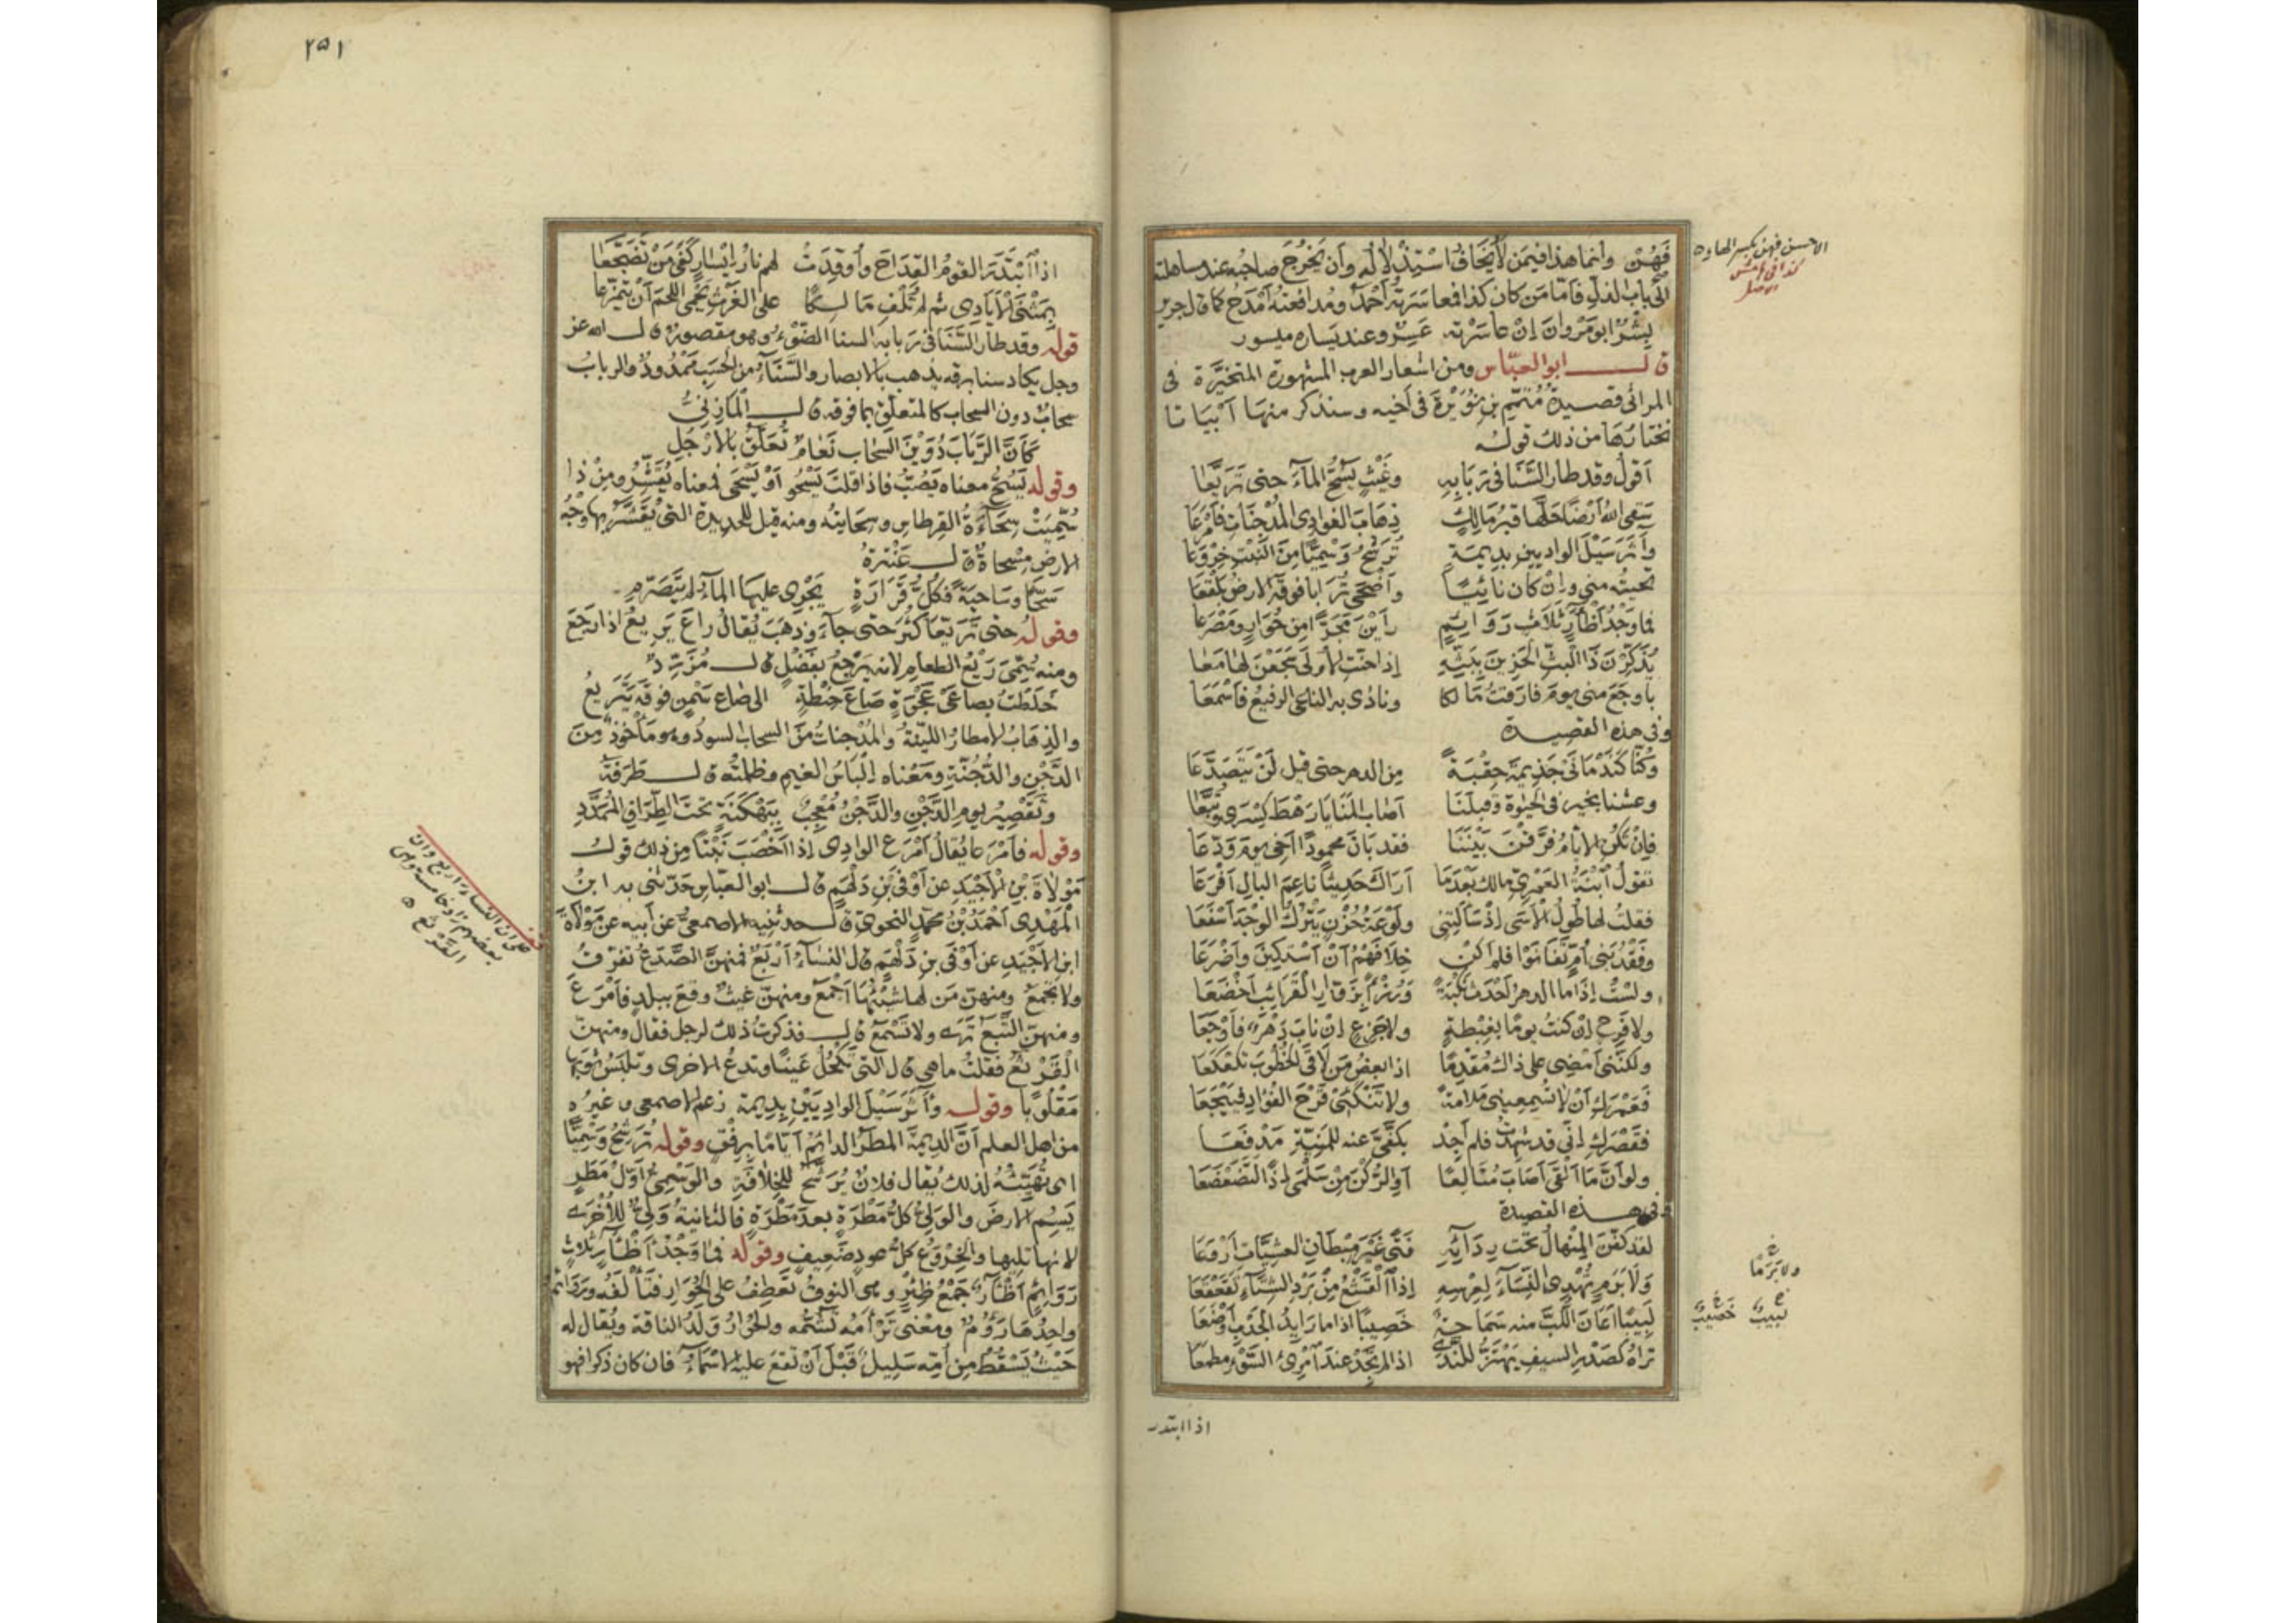 الاحسن فهن بكسر الهاء
كذا في هامش
الاصل
فَهُنْ وانما هذا فيمن لا يخاف استذلالُه وأن يُخرج صاحبه عند مساهلته
الى باب الذل فأمّا من كان كذا فمعاسرته أحمد ومدافعته أمدح كما قال جرير
بِشْرٌ أبو مروان إن عاسرته عَسِرٌ وعند يساره ميسور
قال ابو العباس ومن اشعار العرب المشهورة المتخيَّرة في
المراثي قصيدة مُتمِّم بن نويرة في أخيه وسنذكر منها أبياتا
نختارها من ذلك قوله
أقول وقد طار السَّنا في ربابه وغيثٍ يَسُحُّ الماءَ حتى تَرَيَّعا
سقى الله أرضا حلّها قبرُ مالكٍ ذِهابَ الغوادي المدجنات فأمرعا
وآثر سيلَ الواديين بديمة تُرَشِّحُ وَسْميّا من النبت خِروعا
تحيته مني وإن كان نائيا وأضحى ترابا فوقه الارض بلقعا
فما وجد أظآرٍ ثلاثٍ روائمٍ رأين مجرّا من حُوار ومصرعا
يُذكِّرن ذا البث الحزين ببثه إذا حنّت الأولى سجعن لها معا
بأوجع مني يوم فارقت مالكا ونادى به الناعي الرفيع فأسمعا
وفي هذه القصيدة
وكنّا كندماني جذيمة حقبةً من الدهر حتى قيل لن يتصدعا
وعشنا بخير في الحيوة وقبلنا أصاب المنايا رهط كسرى وتبعا
فإن تكن الأيام فرّقن بيننا فقد بان محمودا أخي يوم ودّعا
تقول ابنة العمريّ مالك بعدما أراك حديثا ناعم البال أفرعا
فقلت لها طول الأسى إذ سألتني ولوعة حزن يترك الوجه أسفعا
وفقد بني أمٍّ تفانوا فلم أكن خلافهم أن أستكين وأضرعا
ولست إذا ما الدهر أحدث نكبة ورزءًا بزوّار القرائب أخضعا
ولا فرحٍ إن كنت يوما بغبطة ولا جزعٍ إن ناب دهرٌ فأوجعا
ولكنني أمضي على ذاك مقدما اذا بعض من لاقى الخطوب تكعكعا
فعمركِ أن لا تسمعيني ملامة ولا تنكئي قرح الفؤاد فييجعا
فقصركِ إني قد شهدت فلم أجد بكفّيَّ عنه للمنيّة مدفعا
ولو أنّ ما ألقى أصاب متالعا أو الركن من سلمى إذًا لتضعضعا
وفي هذه القصيدة
لقد كفّن المنهال تحت ردائه فتى غير مبطان العشيّات أروعا
ولا بَرَمٍ تُهدي النساء لعرسه إذا القشع من برد الشتاء تقعقعا
لبيبا أعان اللبَّ منه سماحة خصيبا اذا ما رائد الجدب أوضعا
تراه كصدر السيف يهتزّ للندى اذا لم تجد عند امرئ السَّوْءِ مطمعا
خ
ولا بَرَمًا
خ خ
لبيبٌ خصيبٌ
اذا ابتدر
٢٥١
اذا ابتدر القوم القداح وأوقدت لهم نار أيسار كفى من تضجّعا
بمثنى الأيادي ثم لم تلف مالكا على الفرث يحمي اللحم أن يتمزّعا
قوله وقد طار السَّنا في ربابه السنا الضوء وهو مقصور قال الله عز
وجل يكاد سنا برقه يذهب بالابصار والسَّناء من الحسب ممدود والرباب
سحاب دون السحاب كالمتعلق بما فوقه قال المازنيّ
كأنّ الرباب دوين السحاب نعام تعلّق بالأرجل
وقوله يسحّ معناه يصبّ فاذا قلت يسحو أو يسحى فمعناه يقشر ومن ذا
سمّيت سحاءة القرطاس وسحايته ومنه قيل للحديدة التي يقشر بها وجه
الارض مسحاة قال عنترة
سحّا وساحية فكل قرارة يجري عليها الماء لم يتصرّم
وقوله حتى تريّعا كثر حتى جاء وذهب يقال راع يريع اذا رجع
ومنه سُمّي ريع الطعام لانه يرجع بفضل قال مزرّد
خلطت بصاعي عجوة صاع حنطة الى صاع سمن فوقه يتريّع
والذهاب الامطار الليّنة والمدجنات من السحاب السود وهو مأخوذ من
الدجن والدجنّة ومعناه إلباس الغيم وظلمته قال طرفة
وتقصير يوم الدجن والدجن معجب ببهكنة تحت الطراف الممدّد
وقوله فأمرعا يقال أمرع الوادي إذا أخصب نبتا من ذلك قول
مولاة بن الأجيد عن أوفى بن دلهم قال ابو العباس حدثني به ابن
المهدي أحمد بن محمد النحوي قال حدثنيه الاصمعي عن أبيه عن مولاة
ابن الأجيد عن أوفى بن دلهم قال النساء أربع فمنهنّ الصدع تفرّق
ولا تجمع ومنهنّ من لها شيئها أجمع ومنهنّ غيث وقع ببلد فأمرع
ومنهنّ التبع ترى ولا تسمع قال فذكرت ذلك لرجل فقال ومنهنّ
القرثع فقلت ما هي قال التي تكحل عينا وتدع الأخرى وتلبس ثوبها
مقلوبا وقوله وآثر سيل الواديين بديمة زعم الاصمعي وغيره
من اهل العلم أن الديمة المطر الدائم أياما برفق وقوله ترشّح وسميّا
اى تهيّئه لذلك يقال فلان يرشّح للخلافة والوسميّ أوّل مطر
يسم الارض والوليّ كل مطرة بعد مطرة فالثانية وليّ للأخرى
لانها تليها والخروع كل عود ضعيف وقوله فما وجد أظآر ثلاث
روائم أظآر جمع ظئر وهي النوق تعطف على الحوار فتألفه وروائم
واحدها رؤوم ومعنى ترأمه تشمّه والحوار ولد الناقة ويقال له
حيث يسقط من أمّه سليل قبل أن تقع عليه الاسماء فان كان ذكرا فهو
على ان النساء اربع وان
بعضهم زاد خامسة وهي
القرثع